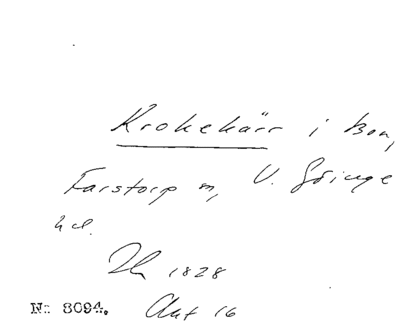 Krokekärr i
Farstorp sn, V. Göinge
hd.
1828
Nº 8094. Akt 16